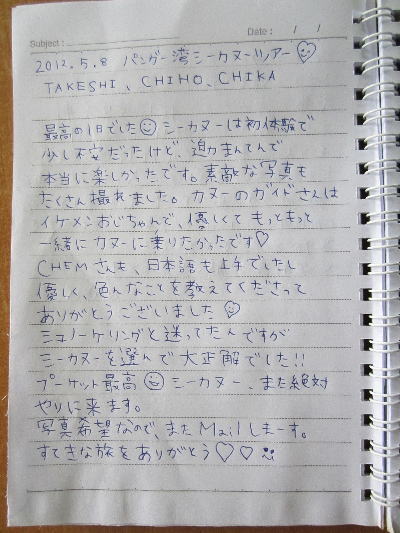 Subject : Date : / /
2012.5.8 パンガー湾シーカヌーツアー♡
TAKESHI、CHIHO、CHIKA
最高の1日でした☺シーカヌーは初体験で
少し不安だったけど、迫力まんてんで
本当に楽しかったです。素敵な写真も
たくさん撮れました。カヌーのガイドさんは
イケメンおじちゃんで、優しくてもっともっと
一緒にカヌーに乗りたかったです♡
CHEMさんも、日本語も上手でしたし
優しく、色んなことを教えてくださって
ありがとうございました☺
シュノーケリングと迷ってたんですが
シーカヌーを選んで大正解でした!!
プーケット最高☺シーカヌー、また絶対
やりに来ます。
写真希望なので、またMailしまーす。
すてきな旅をありがとう♡♡☺